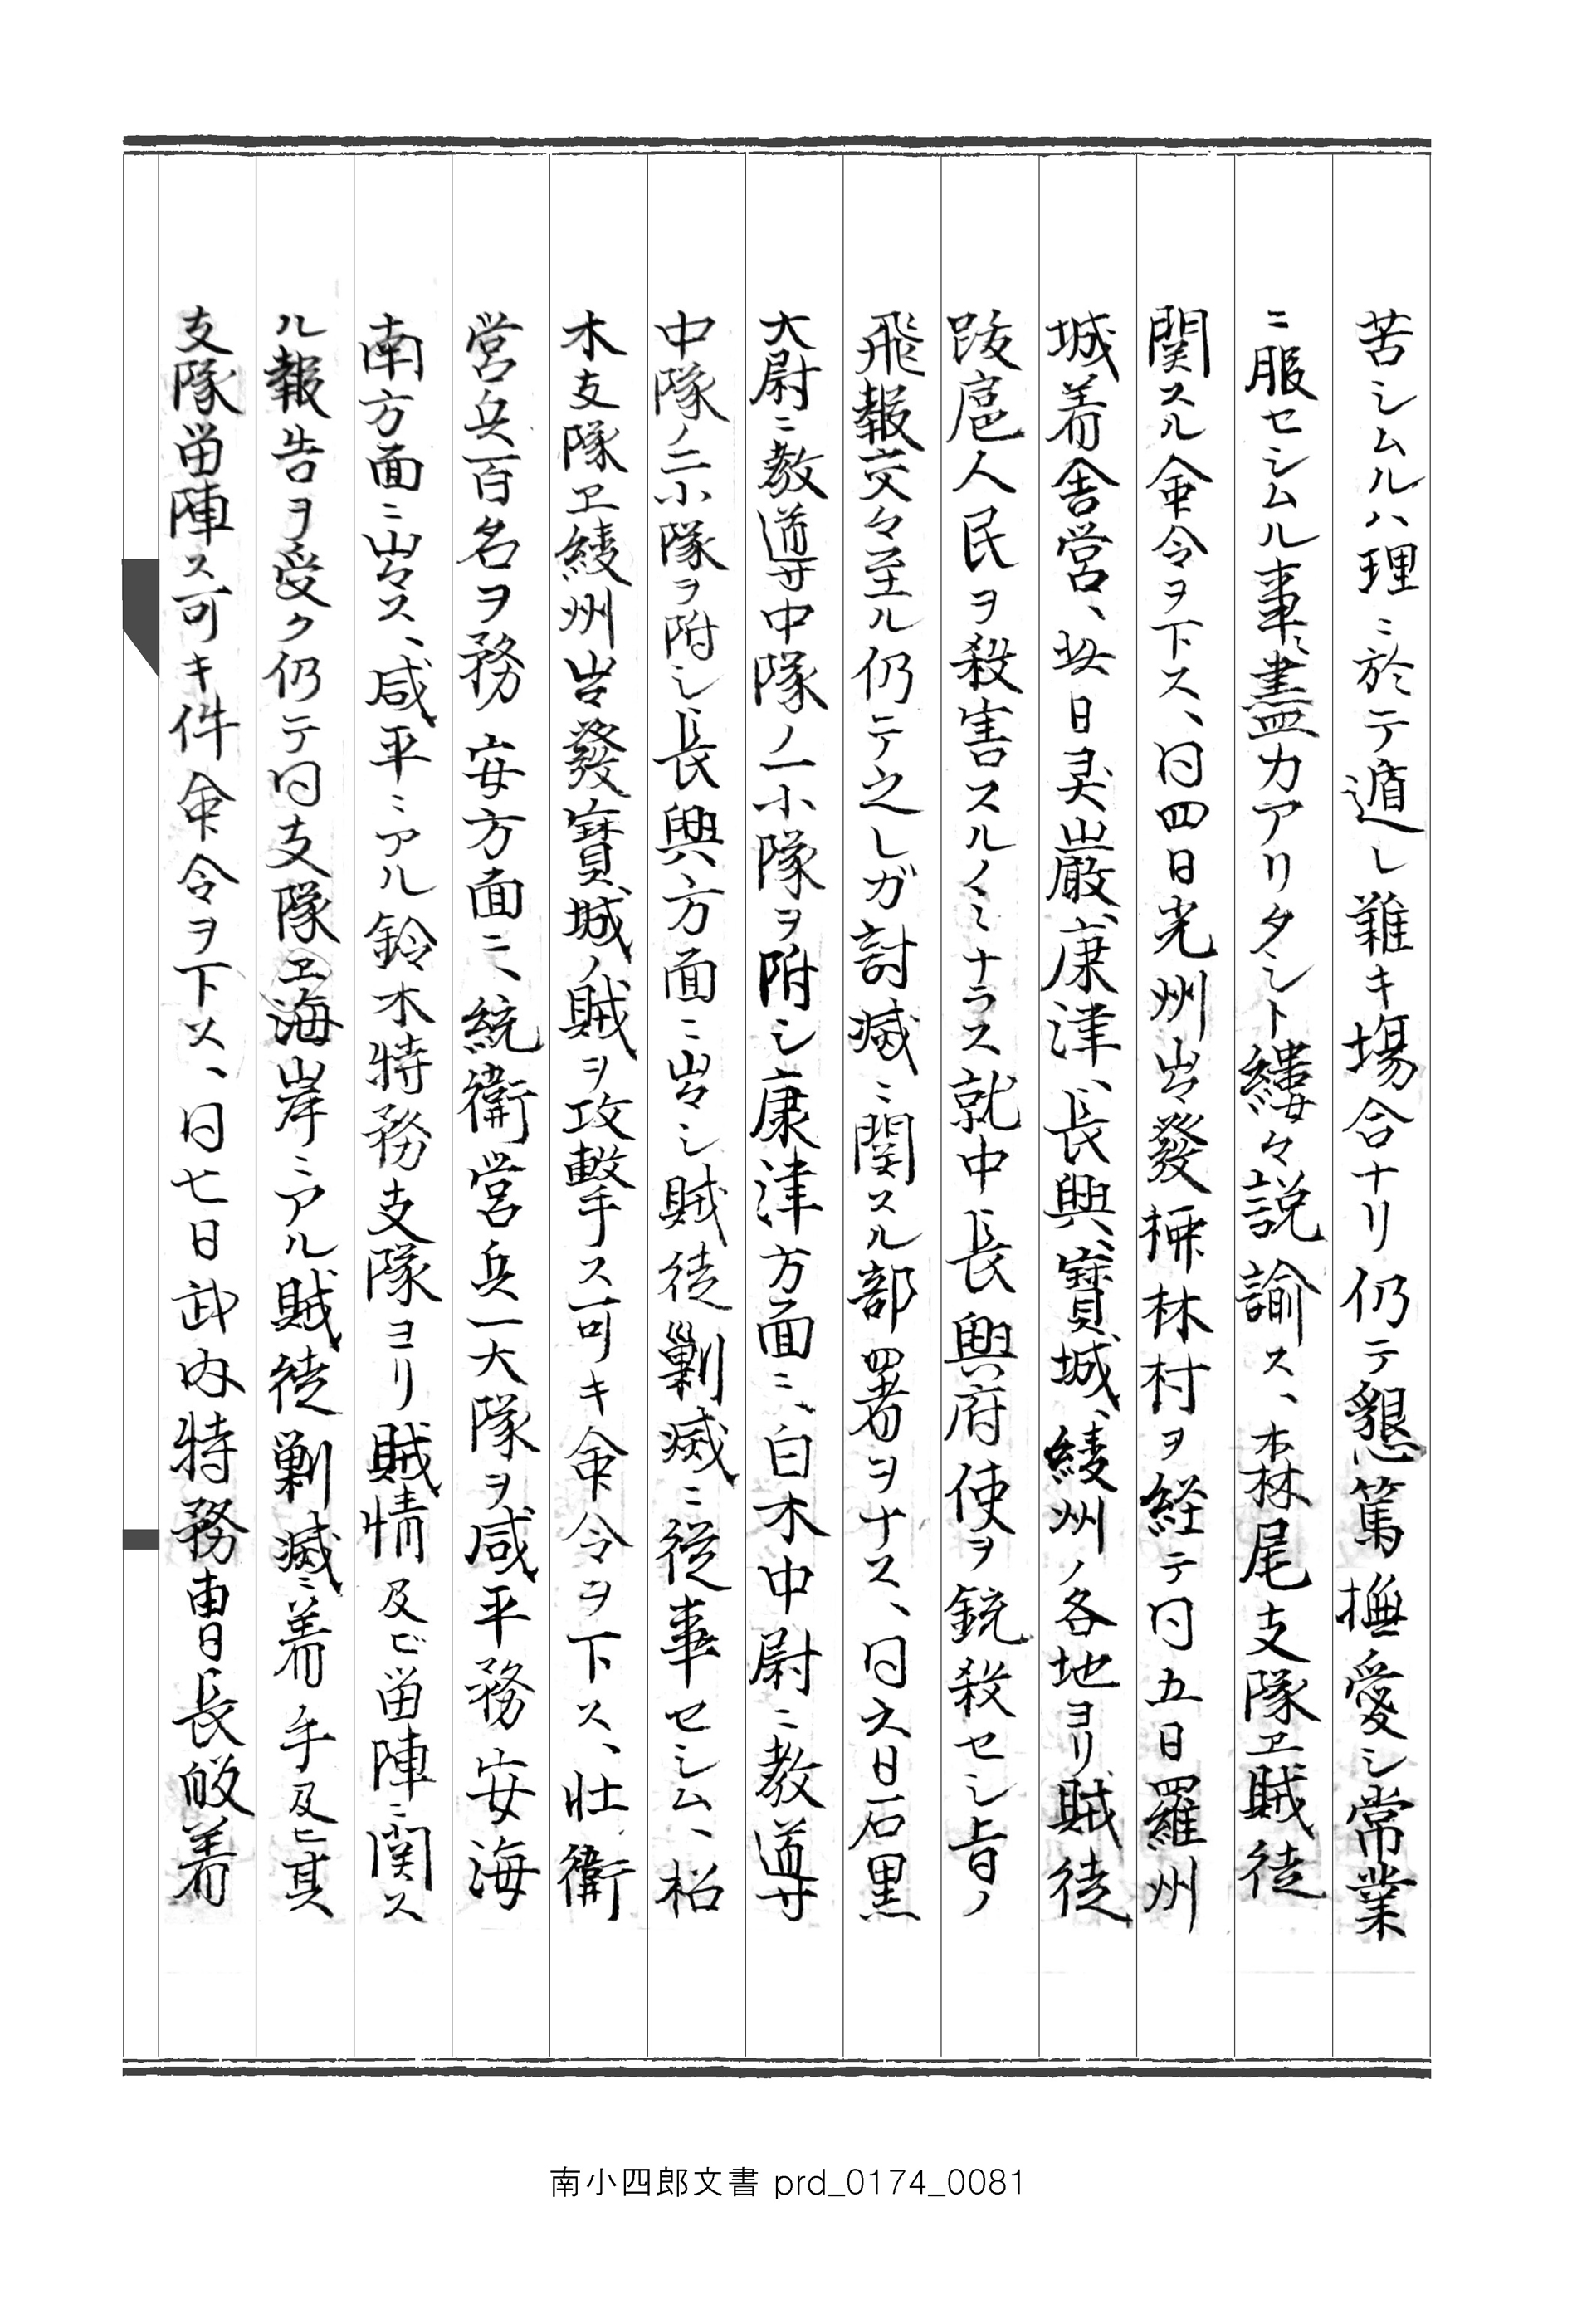 苦シムルハ理ニ於テ遁レ難キ塲合ナリ仍テ懇篤撫愛シ常業
ニ服セシムル事ニ盡力アリタシト縷々説諭ス、森尾支隊エ賊徒
関スル命令ヲ下ス、同四日光州出發槺林村ヲ経テ同五日羅州
城着舍営、此日灵岩、康津、長興、寳城、綾州ノ各地ヨリ賊徒
跋扈人民ヲ殺害スルノミナラス就中長興府使ヲ銃殺セシ旨ノ
飛報交々至ル仍テ之レガ討滅ニ関スル部署ヲナス、同六日石黒
大尉ニ教導中隊ノ一小隊ヲ附シ康津方面ニ、白木中尉ニ教導
中隊ノ二小隊ヲ附シ長興方面ニ出シ賊徒剿滅ニ從事セシム、枩
木支隊エ綾州出發寳城ノ賊ヲ攻撃ス可キ命令ヲ下ス、壮衛
営兵一百名ヲ務安方面ニ、統衛営兵一大隊ヲ咸平務安海
南方面ニ出ス、咸平ニアル鈴木特務支隊ヨリ賊情及ビ畄陣ニ関ス
ル報告ヲ受ク仍テ同支隊エ海岸ニアル賊徒剿滅ニ着手及ヒ其
支隊畄陣ス可キ件命令ヲ下ス、同七日武内特務曹長皈着
南小四郎文書 prd_0174_0081